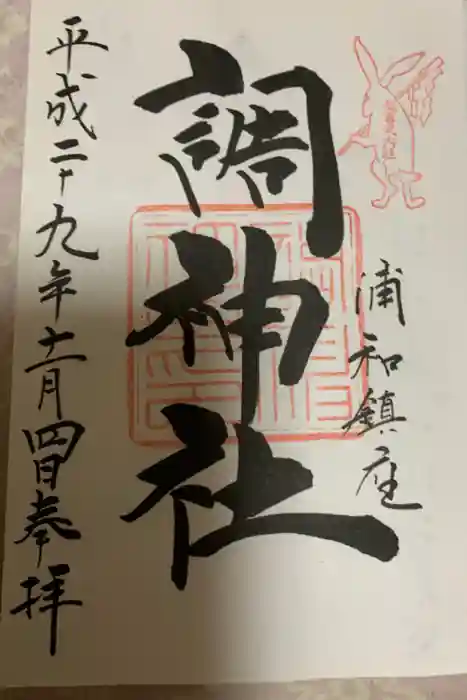 浦和鎮座
調神社
平成二十九年十二月四日奉拝